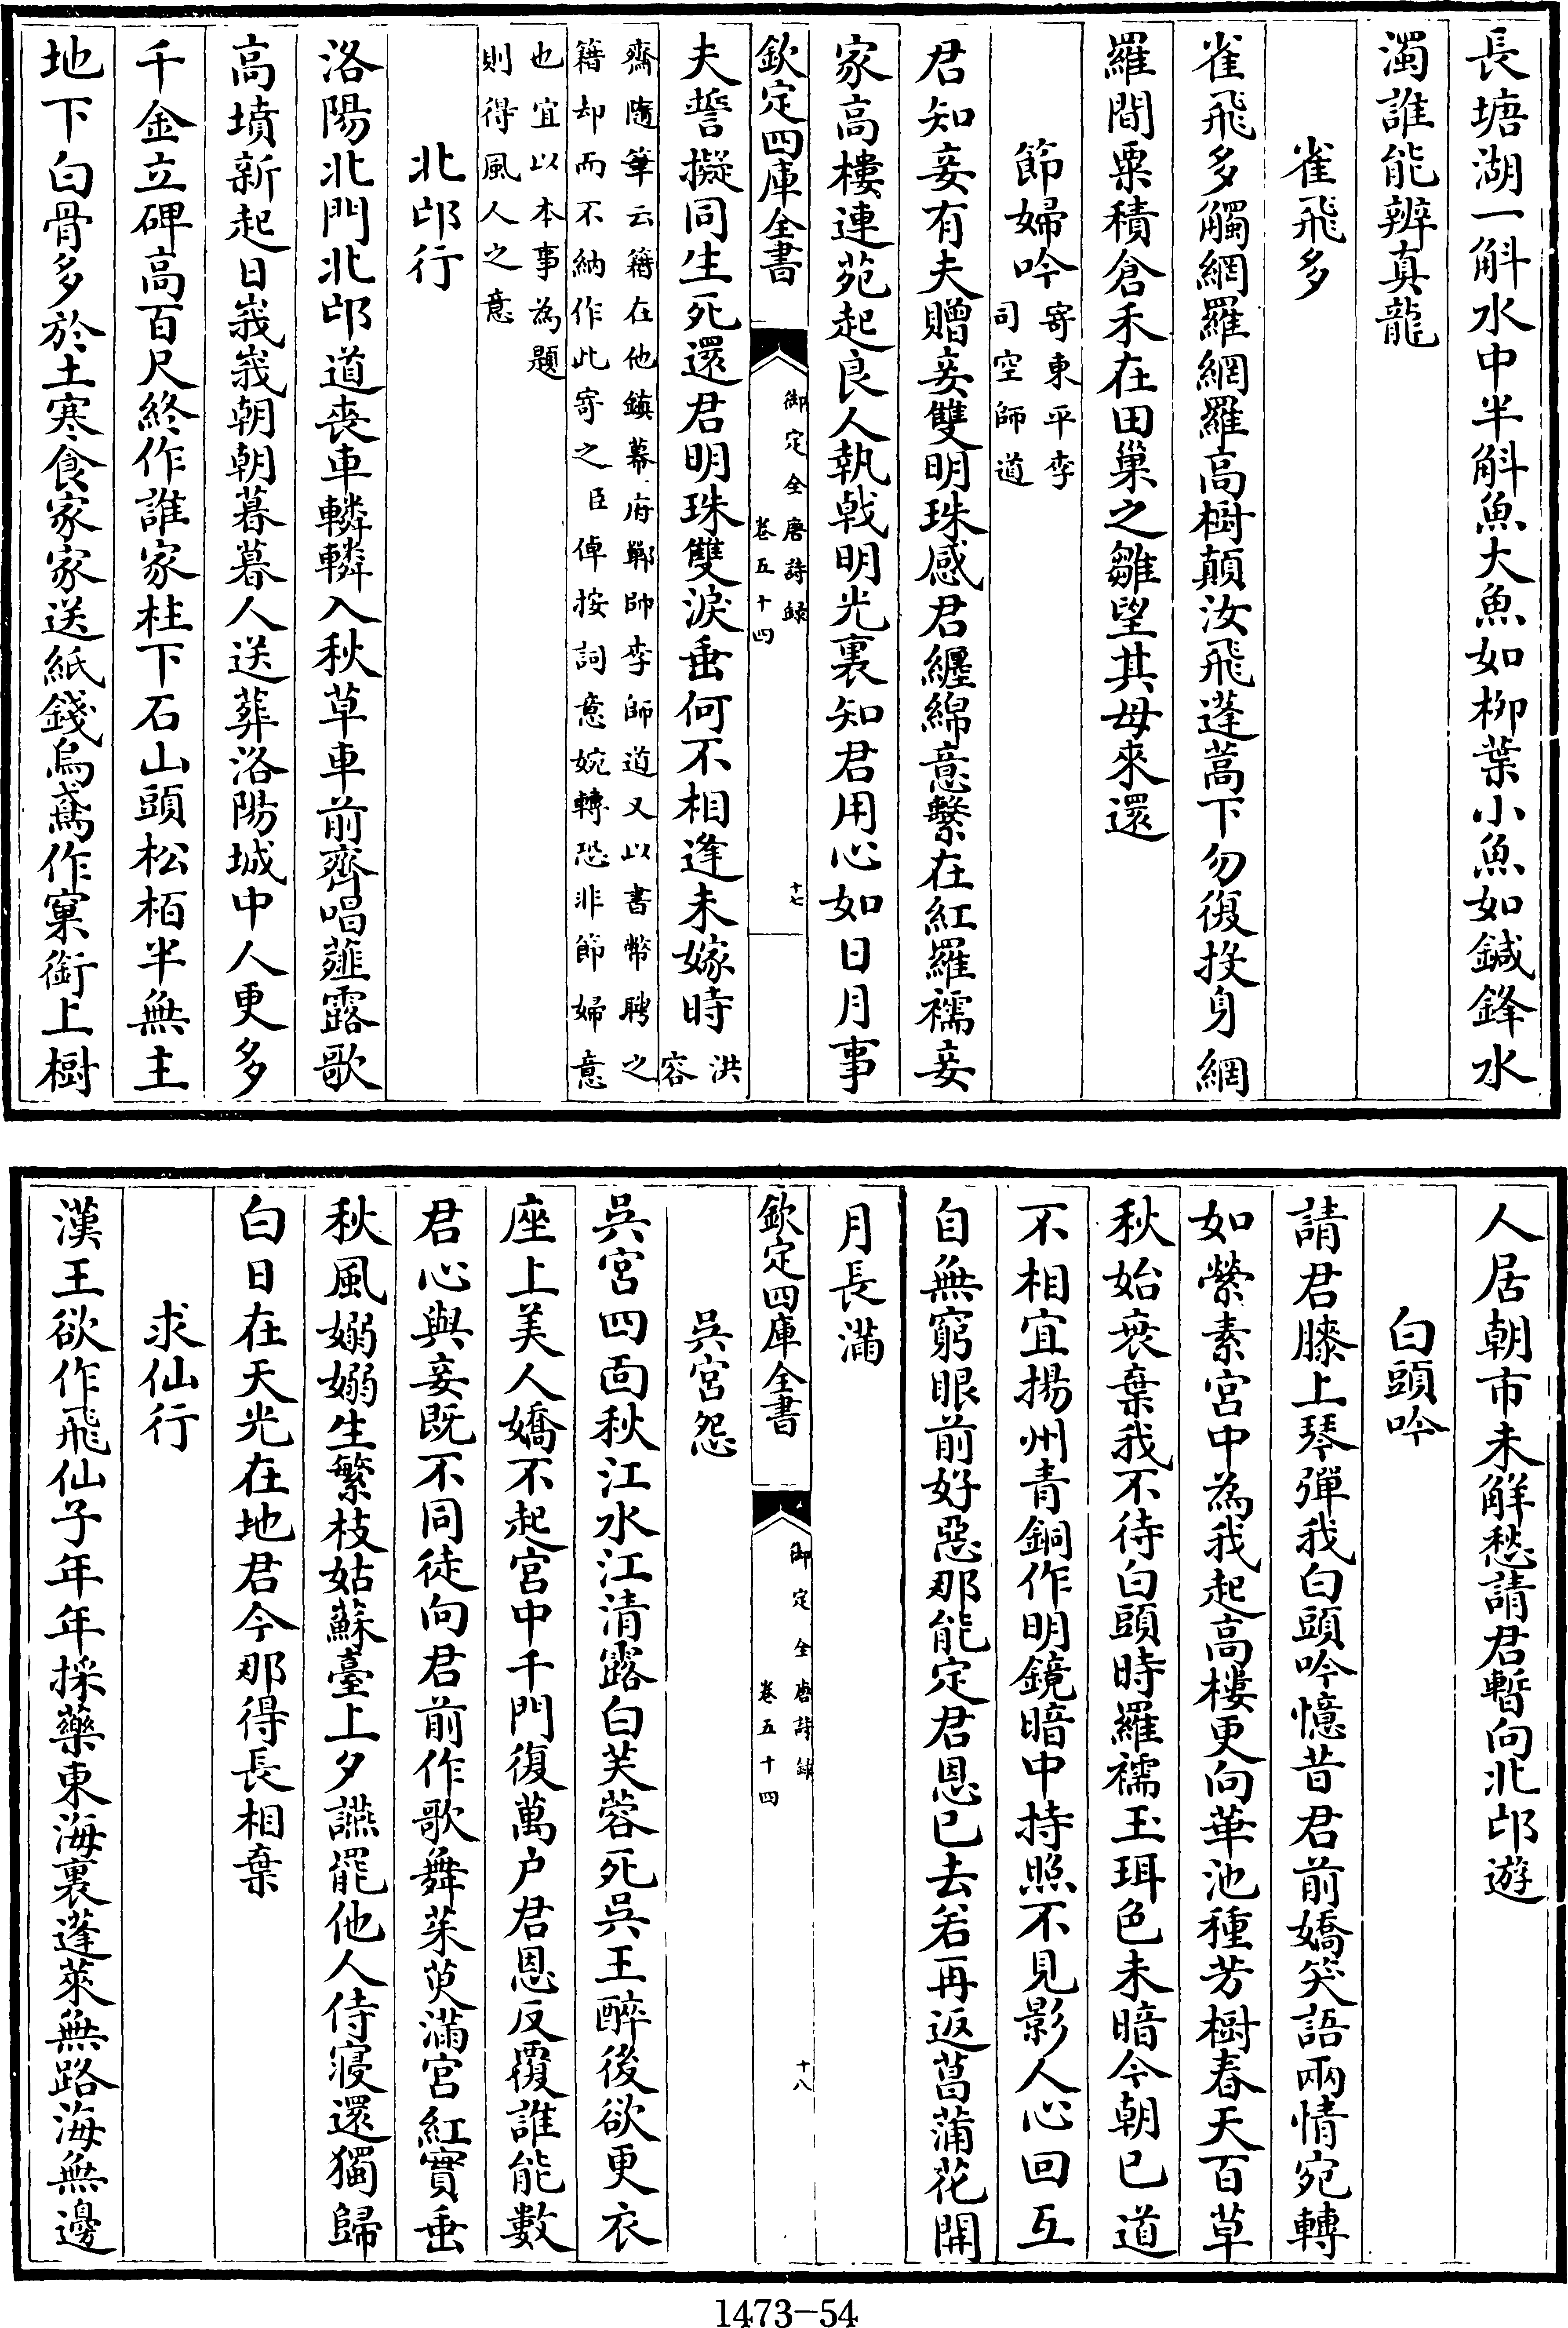 長塘湖一斛水中半斛魚大魚如柳葉小魚如鍼鋒水
濁誰能辨真龍
雀飛多
雀飛多觸網羅網羅高樹顛汝飛蓬蒿下勿復投身網
羅間粟積倉禾在田巢之雛望其母來還
節婦吟寄東平李
司空師道
君知妾有夫贈妾雙明珠感君纏綿意繫在紅羅襦妾
家高樓連苑起良人執戟明光裏知君用心如日月事
欽定四庫全書
御定全唐詩錄
卷五十四
十七
夫誓擬同生死還君明珠雙淚垂何不相逢未嫁時洪
容
齋隨筆云籍在他鎮幕府鄆帥李師道又以書幣聘之
籍却而不納作此寄之臣倬按詞意婉轉恐非節婦意
也宜以本事為題
則得風人之意
北邙行
洛陽北門北邙道喪車轔轔入秋草車前齊唱薤露歌
高墳新起日峩峩朝朝暮暮人送葬洛陽城中人更多
千金立碑高百尺終作誰家柱下石山頭松栢半無主
地下白骨多於土寒食家家送紙錢烏鳶作窠銜上樹
人居朝市未解愁請君暫向北邙遊
白頭吟
請君膝上琴彈我白頭吟憶昔君前嬌笑語兩情宛轉
如縈素宮中為我起高樓更向華池種芳樹春天百草
秋始衰棄我不待白頭時羅襦玉珥色未暗今朝已道
不相宜揚州青銅作明鏡暗中持照不見影人心回互
自無窮眼前好惡那能定君恩已去若再返菖蒲花開
月長滿
欽定四庫全書
御定全唐詩錄
卷五十四
十八
吳宮怨
吳宮四面秋江水江清露白芙蓉死吳王醉後欲更衣
座上美人嬌不起宮中千門復萬户君恩反覆誰能數
君心與妾既不同徒向君前作歌舞茱萸滿宮紅實垂
秋風嫋嫋生繁枝姑蘇臺上夕讌罷他人侍寢還獨歸
白日在天光在地君今那得長相棄
求仙行
漢王欲作飛仙子年年採藥東海裏蓬萊無路海無邊
1473-54